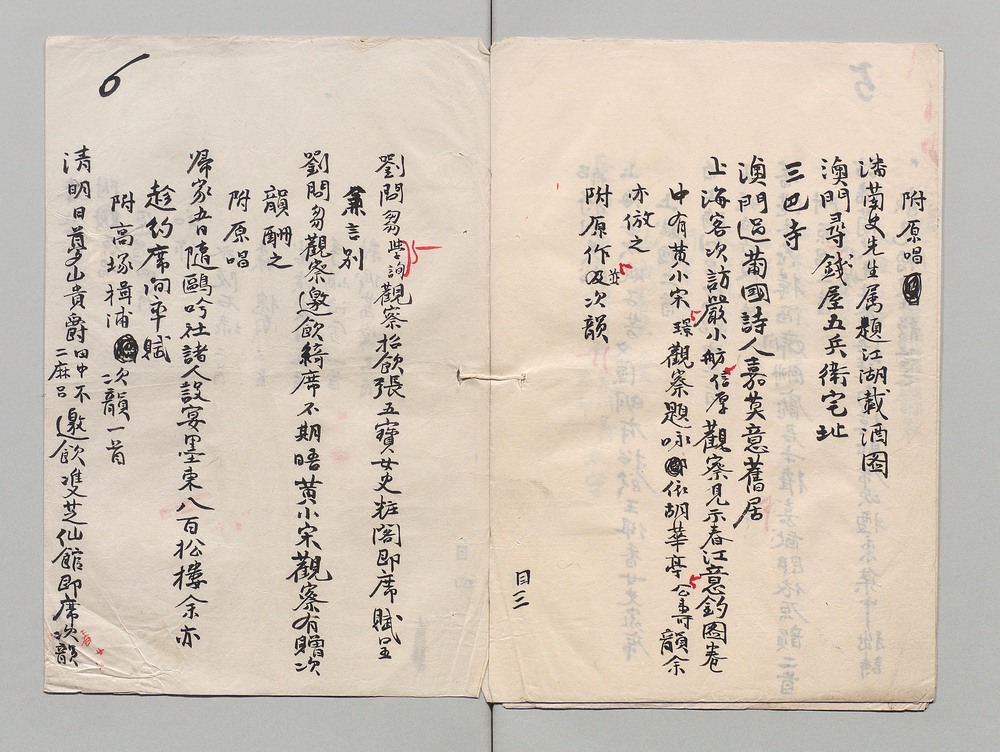 附原唱
潘蘭史先生属題江湖載酒図
澳門尋錢屋五兵衛宅址
三巴寺
澳門過葡國詩人嘉莫意舊居
上海客次訪嚴小舫信厚觀察見示春江意釣圖卷
中有黄小宋璟觀察題咏依胡華亭公壽韻余
亦倣之
附原作並次韻
目三
6
劉問芻學詢觀察招飲張五寶女史粧閣即席賦呈
兼言別
劉問芻觀察邀飲綺席不期晤黄小宋觀察有贈次
韻酬之
附原唱
歸家五日隨鷗吟社諸人設宴墨東八百松樓余亦
趁約席間率賦
附高塚楫浦次韻一首
清明日夢山貴爵田中不二麻呂邀飲雙芝仙館即席次韻
5